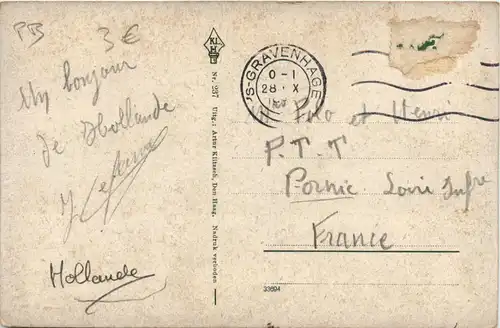 PB
3 €
bonjour
de Hollande
Hollande
KI
H
Nr. 237 Uitg.: Artur Klitzsch, Den Haag. Nadruk verboden
'S-GRAVENHAGE
0-1
28 X
et Henri
P.T.T
Pornic Loire Infre
France
33694